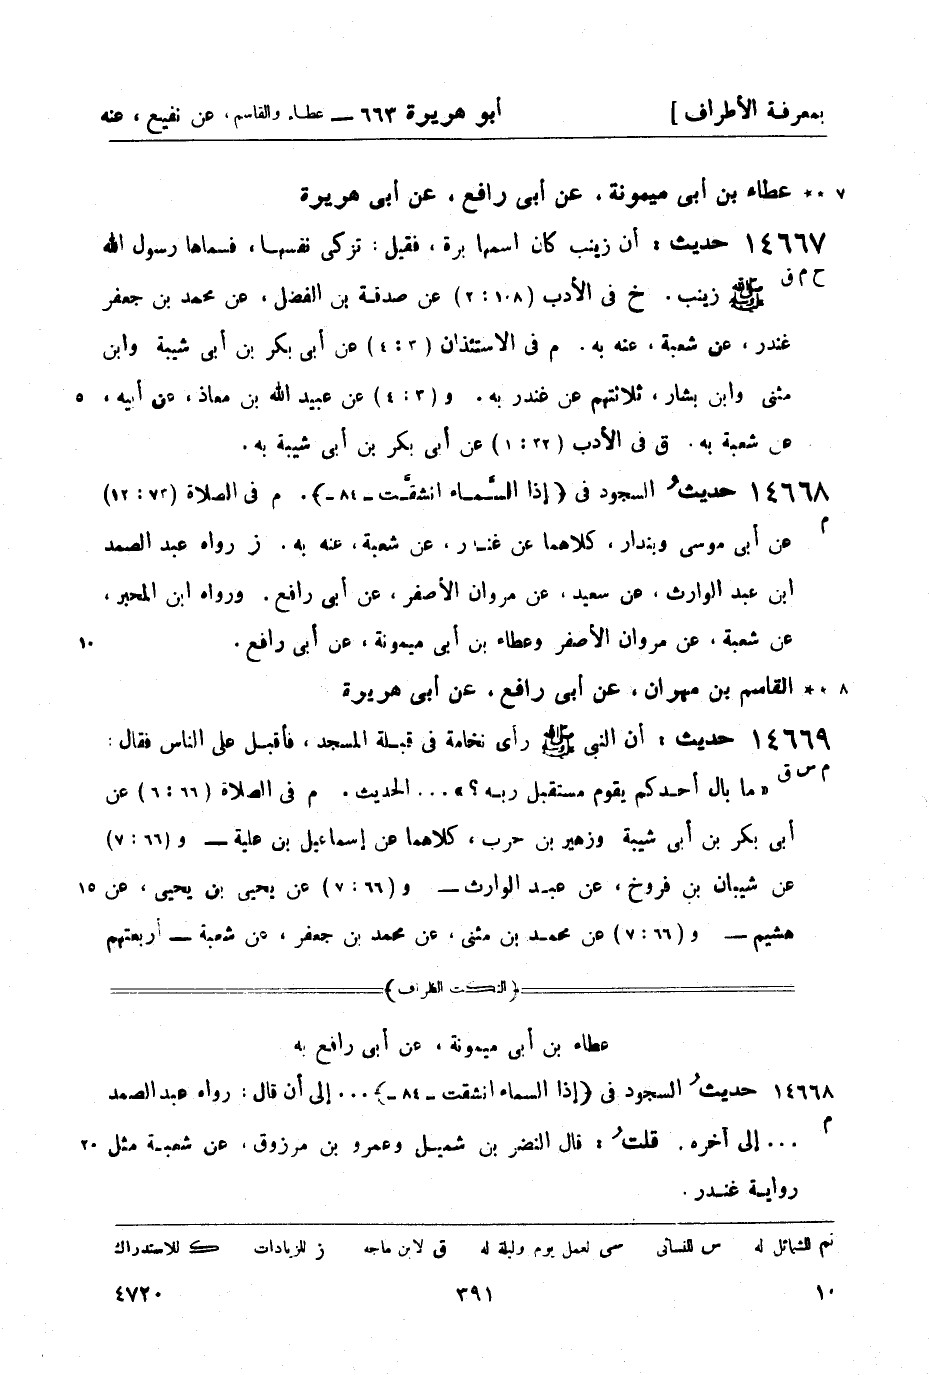 بمعرفة الأطراف ] أبو هريرة ٦٦٣ — عطاء والقاسم، عن نفيع، عنه
٧ ** عطاء بن أبى ميمونة، عن أبى رافع، عن أبى هريرة
١٤٦٦٧ حديث : أن زينب كان اسمها برة، فقيل : تزكى نفسها، فسماها رسول الله
خ م ق ﷺ زينب. خ فى الأدب (١٠٨ : ٢) عن صدقة بن الفضل، عن محمد بن جعفر
غندر، عن شعبة، عنه به. م فى الاستئذان (٣ : ٤) عن أبى بكر بن أبى شيبة وابن
مثنى وابن بشار، ثلاثتهم عن غندر به. و (٣ : ٤) عن عبيد الله بن معاذ، عن أبيه، ٥
عن شعبة به. ق فى الأدب (٣٢ : ١) عن أبى بكر بن أبى شيبة به.
١٤٦٦٨ حديثُ السجود فى ﴿إذا السَّماء انشقَّت ـ ٨٤ ـ﴾. م فى الصلاة (٧٣ : ١٢)
م عن أبى موسى وبندار، كلاهما عن غندر، عن شعبة، عنه به. ز رواه عبد الصمد
ابن عبد الوارث، عن سعيد، عن مروان الأصفر، عن أبى رافع. ورواه ابن المحبر،
عن شعبة، عن مروان الأصفر وعطاء بن أبى ميمونة، عن أبى رافع. ١٠
٨ ** القاسم بن مهران، عن أبى رافع، عن أبى هريرة
١٤٦٦٩ حديث : أن النبى ﷺ رأى نخامة فى قبلة المسجد، فأقبل على الناس فقال :
م س ق «ما بال أحدكم يقوم مستقبل ربه؟»... الحديث. م فى الصلاة (٦٦ : ٦) عن
أبى بكر بن أبى شيبة وزهير بن حرب، كلاهما عن إسماعيل بن علية — و (٦٦ : ٧)
عن شيبان بن فروخ، عن عبد الوارث — و (٦٦ : ٧) عن يحيى بن يحيى، عن ١٥
هشيم — و (٦٦ : ٧) عن محمد بن مثنى، عن محمد بن جعفر، عن شعبة — أربعتهم
﴿النكت الظراف﴾
عطاء بن أبى ميمونة، عن أبى رافع به
١٤٦٦٨ حديثُ السجود فى ﴿إذا السماء انشقت ـ ٨٤ ـ﴾... إلى أن قال : رواه عبد الصمد
م ... إلى آخره. قلتُ : قال النضر بن شميل وعمرو بن مرزوق، عن شعبة مثل ٢٠
رواية غندر.
تم للشمائل له س للنسائى سى لعمل يوم وليلة له ق لابن ماجه ز للزيادات ك للاستدراك
١٠ ٣٩١ ٤٧٢٠